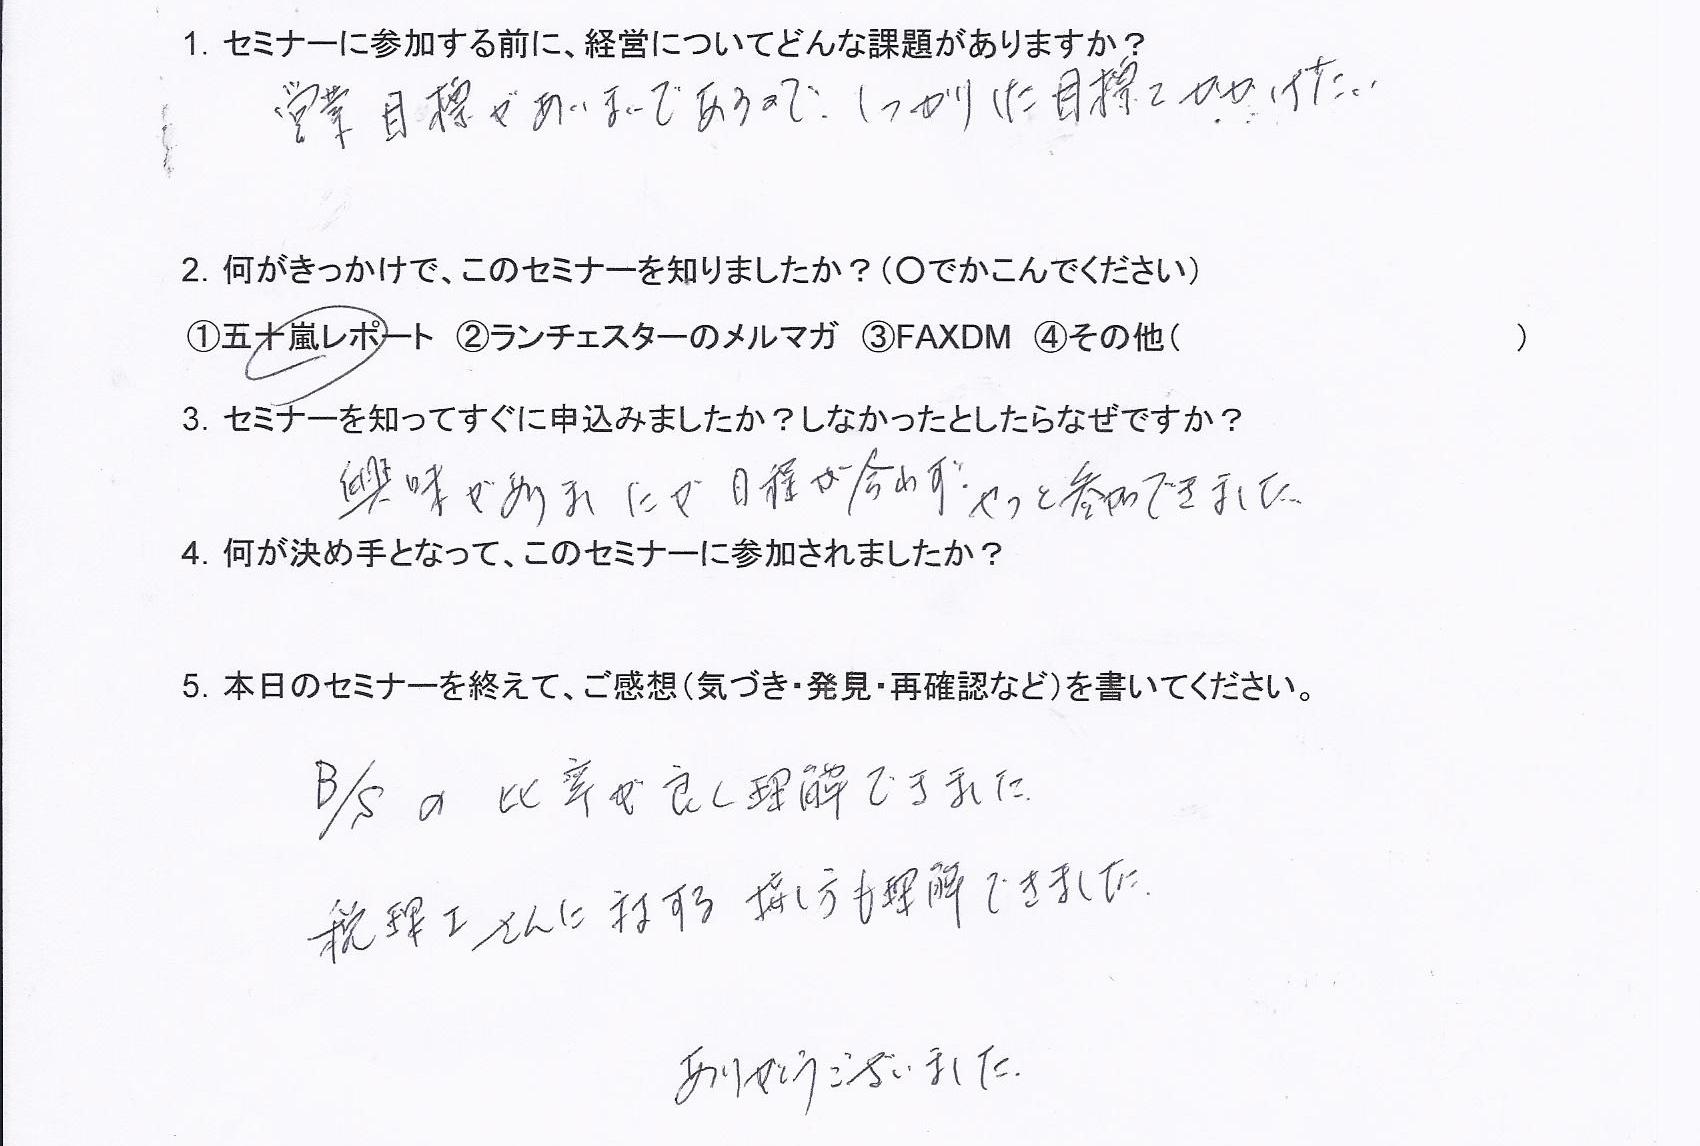 1. セミナーに参加する前に、経営についてどんな課題がありますか？
営業目標があいまいであるので、しっかりした目標をかかげたい
2. 何がきっかけで、このセミナーを知りましたか？（〇でかこんでください）
①五十嵐レポート ②ランチェスターのメルマガ ③FAXDM ④その他（ ）
3. セミナーを知ってすぐに申込みましたか？しなかったとしたらなぜですか？
興味がありましたが日程が合わず、やっと参加できました。
4. 何が決め手となって、このセミナーに参加されましたか？
5. 本日のセミナーを終えて、ご感想（気づき・発見・再確認など）を書いてください。
B/Sの比率が良く理解できました。
税理士さんに対する接し方も理解できました。
ありがとうございました。